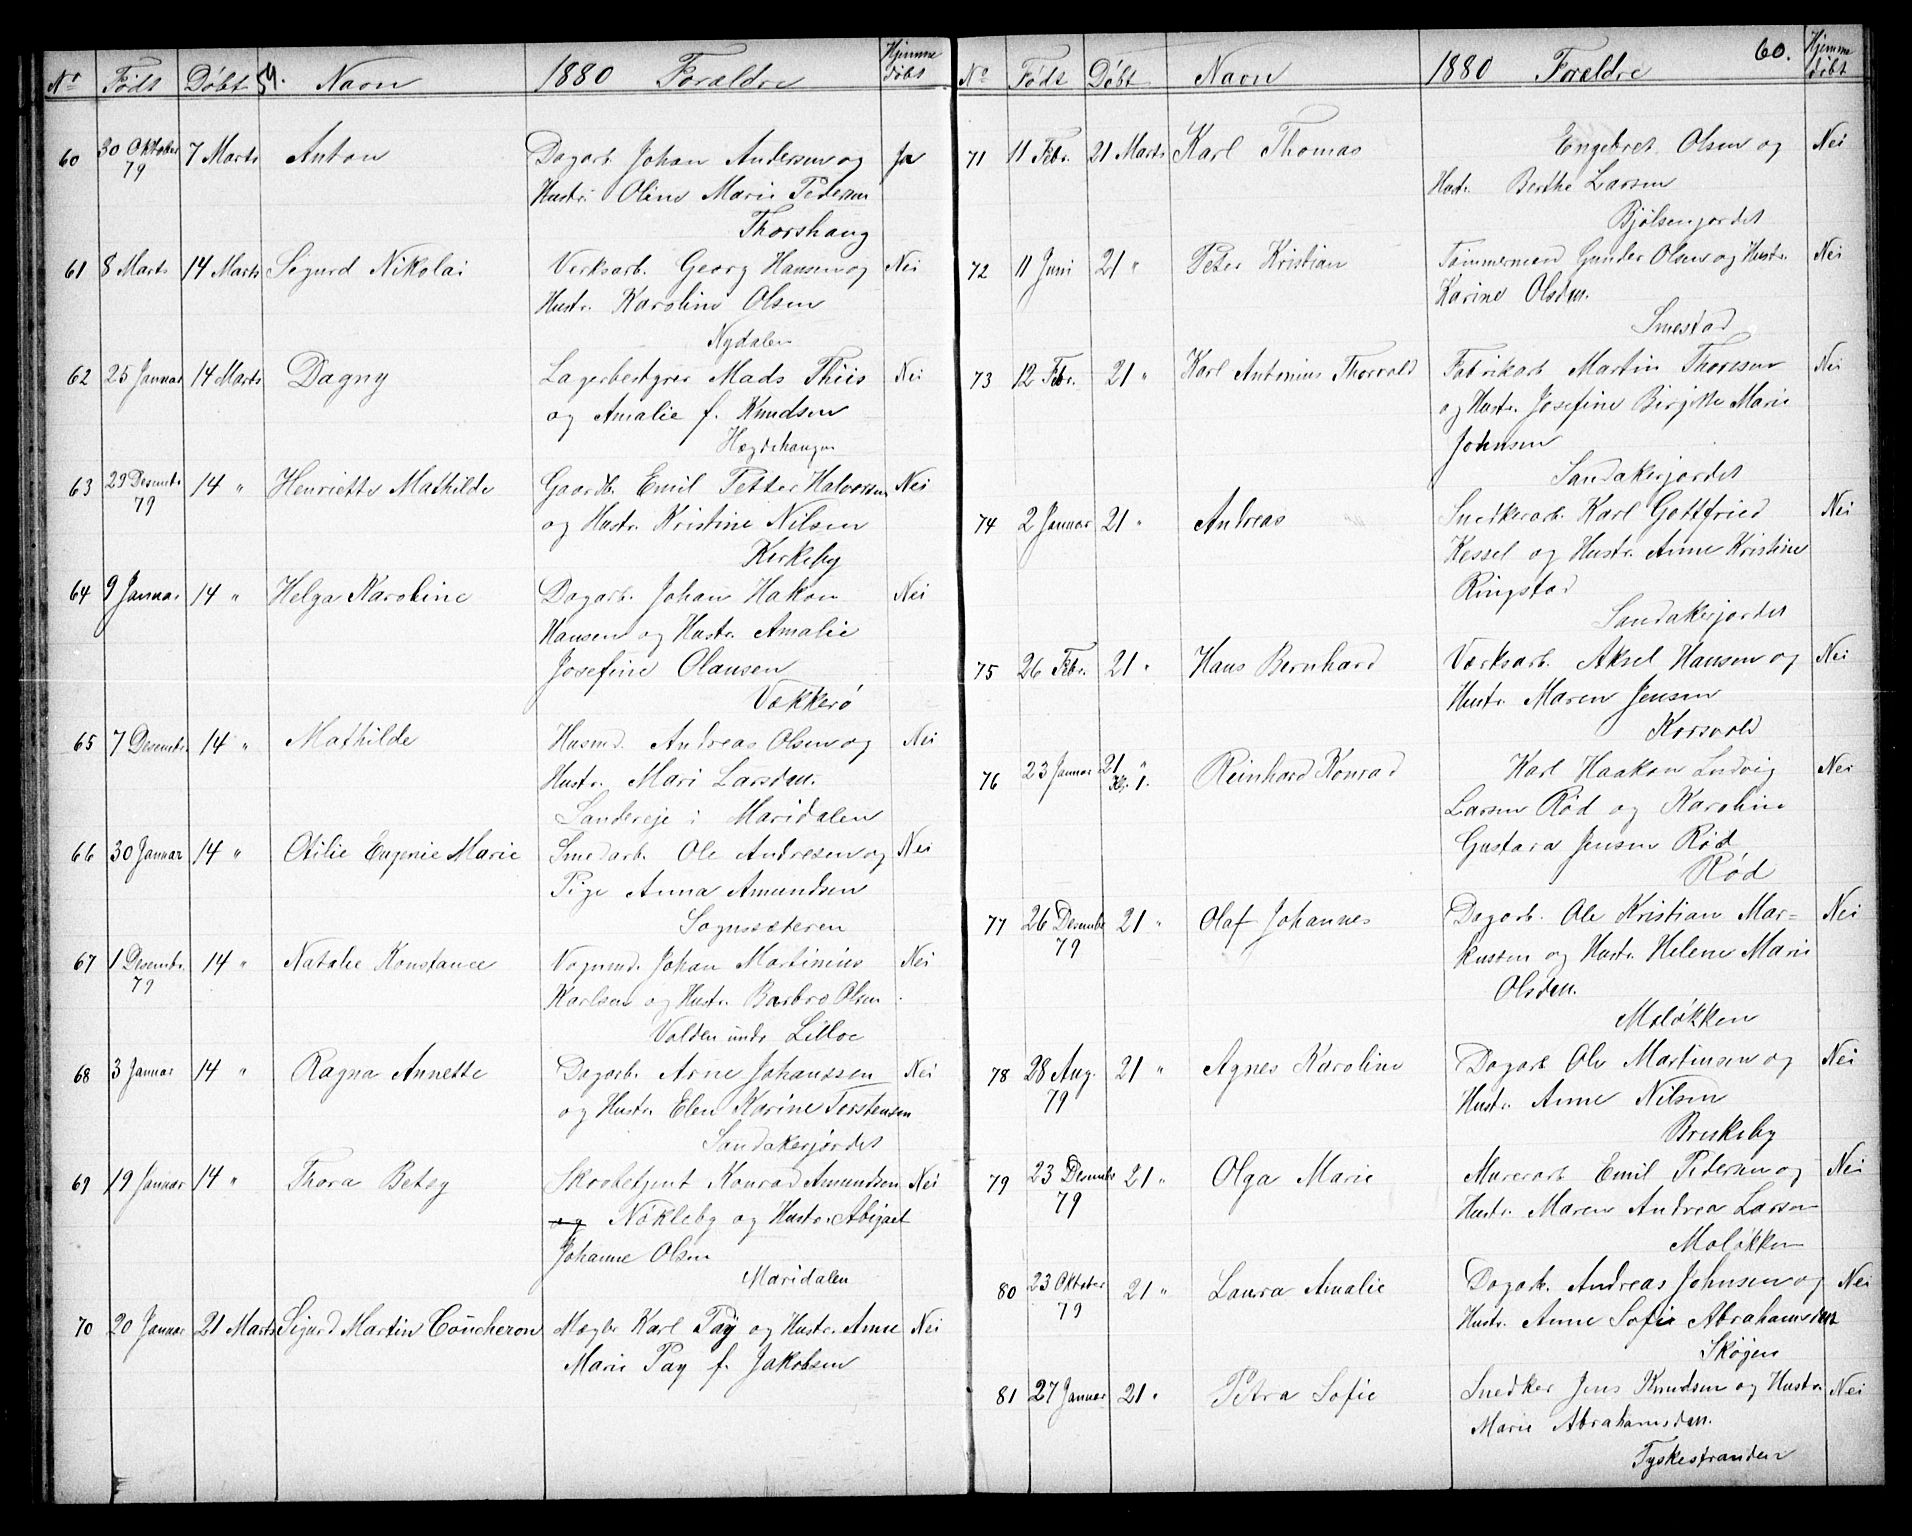 No Født Døbt 59. Navn 1880 Forældre Hjemme døbt
60 30 Oktober 79 7 Marts Anton Dagarb. Johan Andersen og Ja
Hustr. Oline Marie Pedersen
Thorshaug
61 8 Marts 14 Marts Sigurd Nikolai Verksarb. Georg Hansen og Nei
Hustr. Karoline Olsen
Nydalen
62 25 Januar 14 Marts Dagny Lagerbestyrer Mads Thiis Nei
og Amalie f. Knudsen
Hægdehaugen
63 29 Desembr. 79 14 " Henriette Mathilde Gaardb. Emil Petter Halvorsen Nei
og Hustr. Kristine Nilsen
Kirkeby
64 9 Januar 14 " Helga Karoline Dagarb. Johan Hakon Nei
Hansen og Hustr. Amalie
Josefine Olausen
Vækkerø
65 7 Desembr. 14 " Mathilde Husmd. Andreas Olsen og Nei
Hustr. Mari Larsdtr.
Sandereje i Maridalen
66 30 Januar 14 " Otilie Eugenie Marie Smedarb. Ole Andresen og Nei
Pige Anna Amundsen
Sognssæteren
67 1 Desembr. 79 14 " Natalie Konstance Vognmd. Johan Martinius Nei
Karlsen og Hustr. Barbro Olsen
Volden undr Lilloe
68 3 Januar 14 " Ragna Annette Dagarb. Arne Johanssen Nei
og Hustr. Elen Karine Torstensen
Sandakerjordet
69 19 Januar 14 " Thora Betsy Skovbetjent Konrad Amundsen Nei
og Nökleby og Hustr. Abigael
Johanne Olsen
Maridalen
70 20 Januar 21 Marts Sigurd Martin Coucheron Mægler Karl Pay og Hustr. Anne Nei
Marie Pay f. Jakobsen
No Født Døbt Navn 1880 Forældre 60. Hjemme døbt
71 11 Febr. 21 Marts Karl Thomas Engebret Olsen og Nei
Hustr. Berthe Larsen
Bjølsenjordet
72 11 Juni 21 " Peter Kristian Tømmermand Gunder Olsen og Hustr. Nei
Karine Olsdtr.
Smestad
73 12 Febr. 21 " Karl Antonius Thorvald Fabrikarb. Martin Thoressen Nei
og Hustr. Josefine Birgitte Marie
Johnsen
Sandakerjordet
74 2 Januar 21 " Andreas Snedkerarb. Karl Gottfried Nei
Kessel og Hustr. Anne Kristine
Ringstad
Sandakerjordet
75 26 Febr. 21 " Hans Bernhard Værksarb. Aksel Hansen og Nei
Hustr. Maren Jensen
Korsvold
76 23 Januar 21 " Kl. 1. Reinhard Konrad Karl Haakon Ludvig Nei
Larsen Rød og Karoline
Gustava Jensen Rød
Rød
77 26 Desembr 79 21 " Olaf Johannes Dagarb. Ole Kristian Mar-  Nei
kussen og Hustr. Helene Marie
Olsdtr.
Moløkken
78 28 Aug. 79 21 " Agnes Karoline Dagarb Ole Martinsen og Nei
Hustr. Anne Nilsen
Brukeby
79 23 Desembr 79 21 " Olga Marie Murerarb Emil Pedersen og Nei
Hustr. Maren Andrea Larsen
Moløkken
80 23 Oktober 79 21 " Laura Amalie Dagarb. Andreas Johnsen og Nei
Hustr. Anne Sofie Abrahamsdatr
Skøjen
81 27 Januar 21 " Petra Sofie Snedker Jens Knudsen og Hustr. Nei
Marie Abrahamsdtr.
Tyskestranden